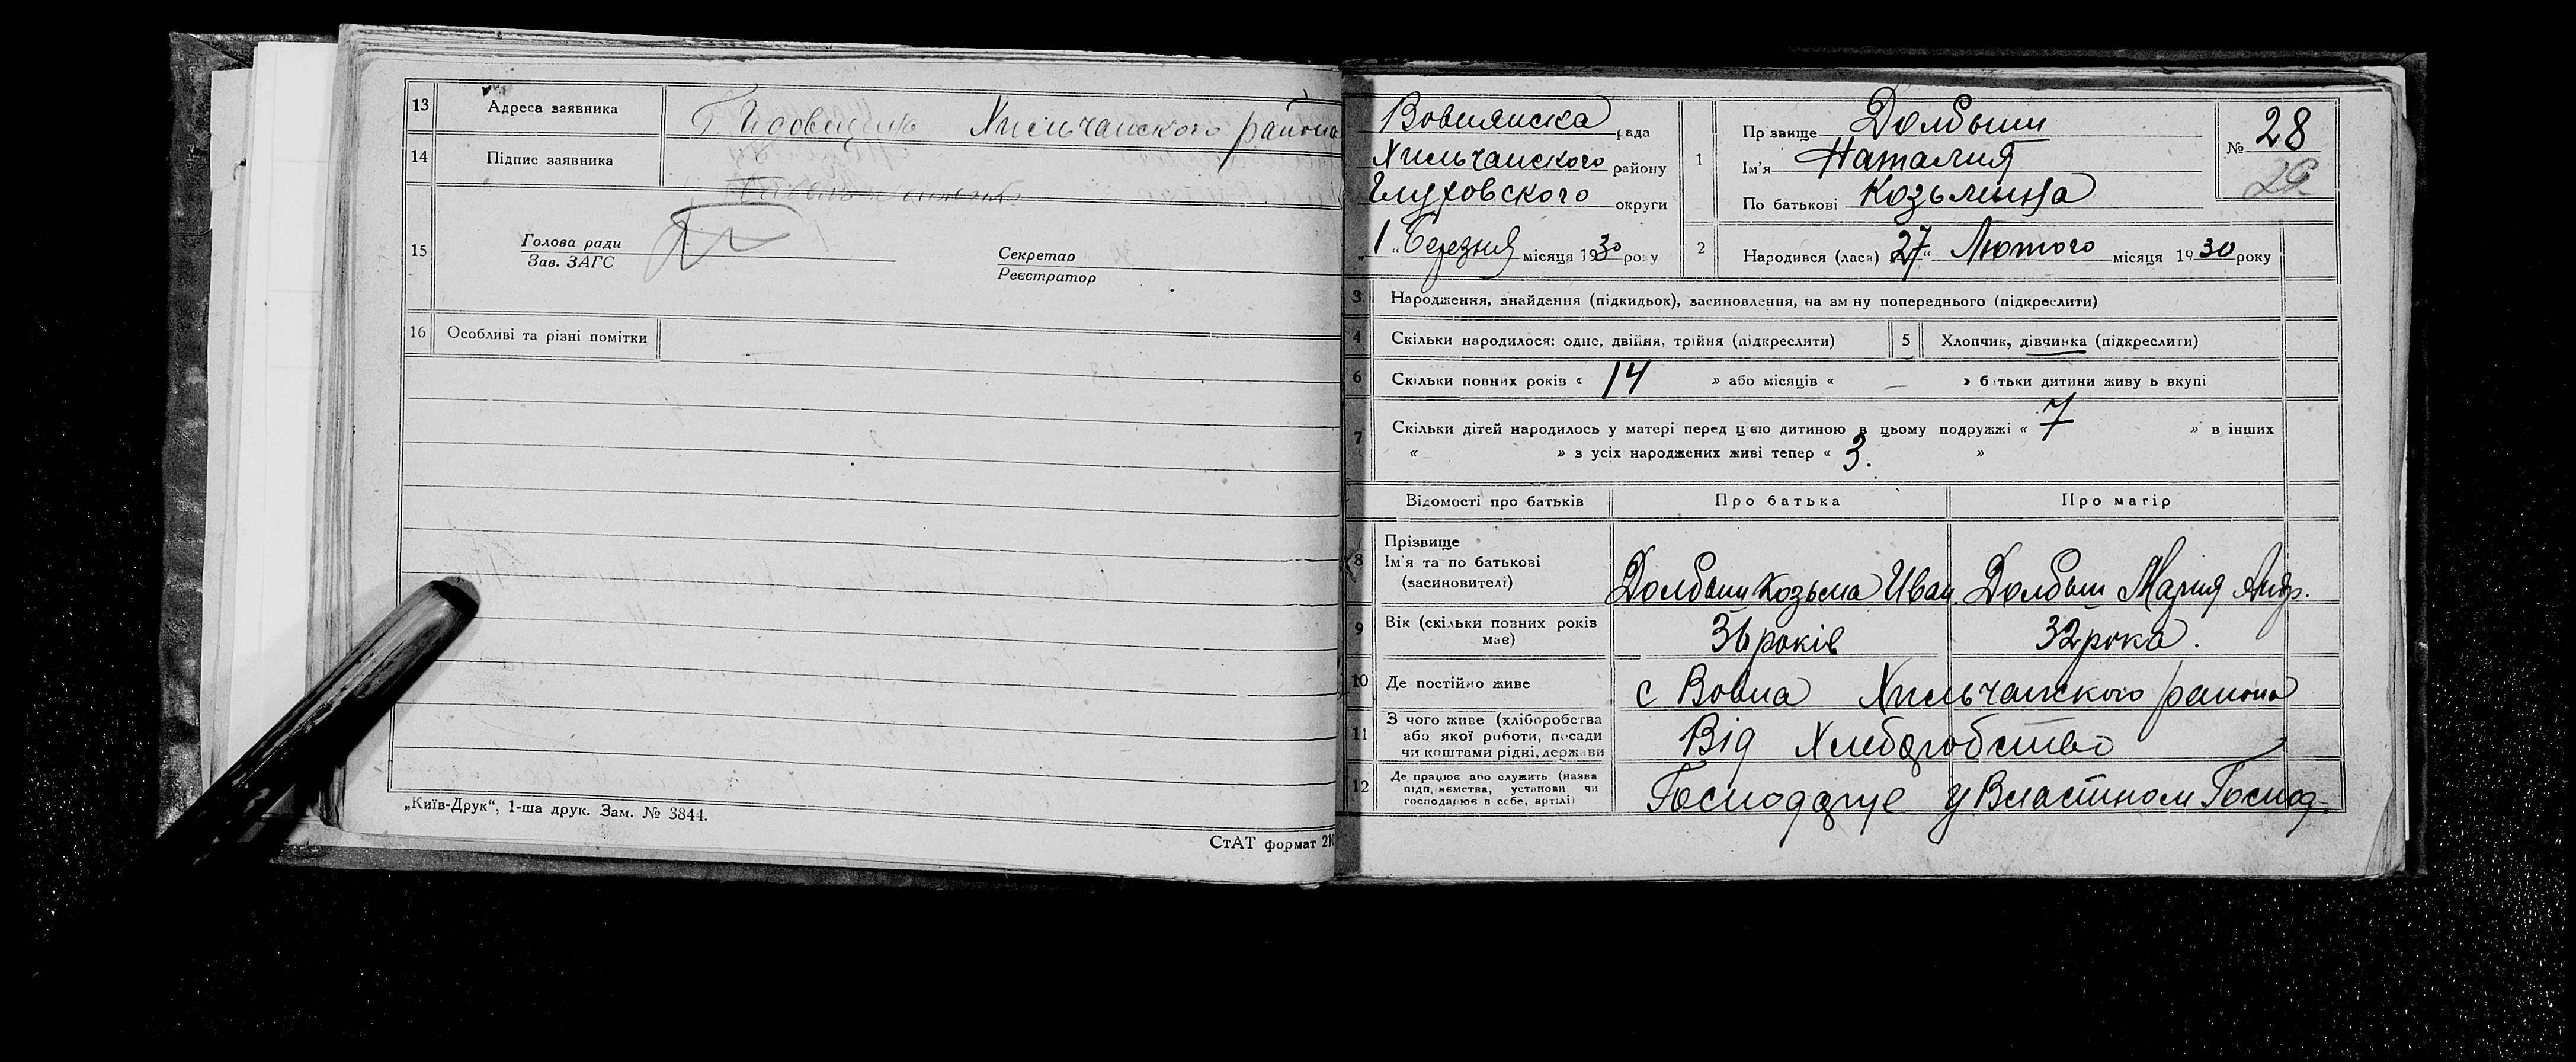 13 Адреса заявника Хильчанского района
14 Підпис заявника
15 Голова ради
Зав. ЗАГС
Секретар
Реєстратор
16 Особливі та різні помітки
„Київ-Друк“, 1-ша друк. Зам. № 3844.
СтАТ формат 210
Вовнянска рада
Хильчанского району
Глуховского округи
„1“ Березня місяця 1930 року
1 Прізвище Долбыш
Ім'я Наталия
По батькові Козьмина
№ 28
29
2 Народився (лася) 27“ Лютого місяця 1930 року
3 Народження, знайдення (підкидьок), засиновлення, на зміну попереднього (підкреслити)
4 Скільки народилося: одне, двійня, трійня (підкреслити) 5 Хлопчик, дівчинка (підкреслити)
6 Скільки повних років « 14 » або місяців « — » батьки дитини живуть вкупі
7 Скільки дітей народилось у матері перед цією дитиною в цьому подружжі « 7 » в інших
« » з усіх народжених живі тепер « 3. »
Відомості про батьків Про батька Про матір
8 Прізвище
Ім'я та по батькові
(засиновителі)
Долбыш Козьма Иван. Долбыш Мария Андр.
9 Вік (скільки повних років
має)
36 років 32 рока.
10 Де постійно живе с Вовна Хильчанского района
11 З чого живе (хліборобства
або якої роботи, посади
чи коштами рідні, держави
Від Хлеборобство
12 Де працює або служить (назва
підприємства, установи чи
господарює в себе, артілі)
Господарує у Властном Господ.